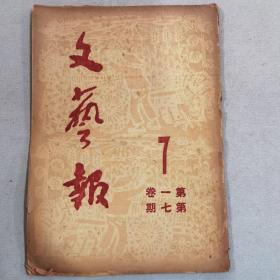 文藝報
7
第一卷
第七期